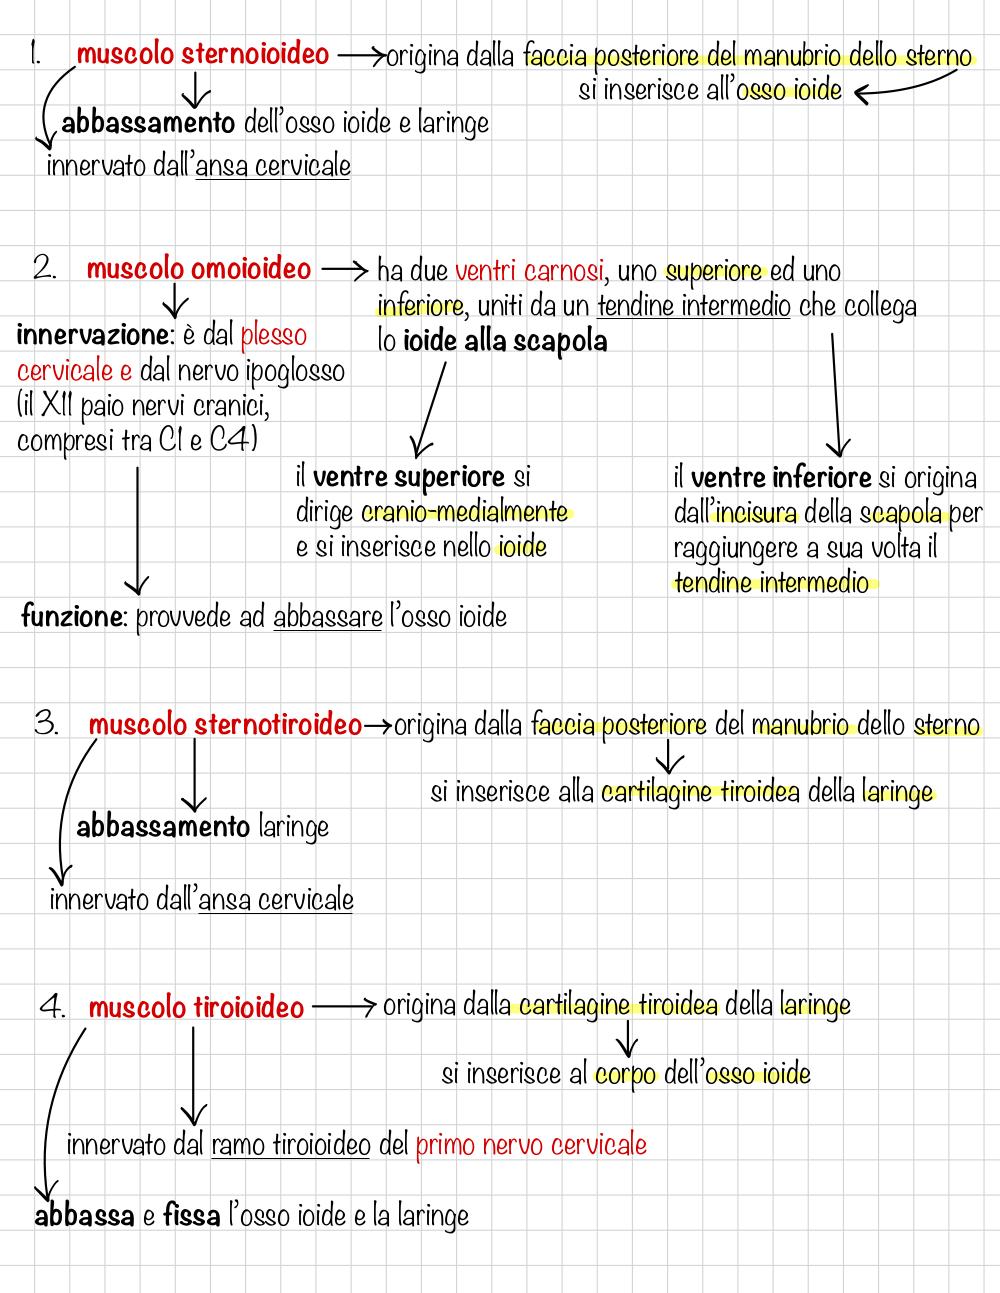 1. muscolo sternoioideo origina dalla faccia posteriore del manubrio dello sterno
si inserisce all'osso ioide
abbassamento dell'osso ioide e laringe
innervato dall'ansa cervicale
2. muscolo omoioideo
ha due ventri carnosi, uno superiore ed uno
inferiore, uniti da un tendine intermedio che collega
lo ioide alla scapola
innervazione: è dal plesso
cervicale e dal nervo ipoglosso
(il XII paio nervi cranici,
compresi tra C1 e C4)
il ventre superiore si
dirige cranio-medialmente
e si inserisce nello ioide
il ventre inferiore si origina
dall'incisura della scapola per
raggiungere a sua volta il
tendine intermedio
funzione: provvede ad abbassare l'osso ioide
3. muscolo sternotiroideo origina dalla faccia posteriore del manubrio dello sterno
si inserisce alla cartilagine tiroidea della laringe
abbassamento laringe
innervato dall'ansa cervicale
4. muscolo tiroioideo origina dalla cartilagine tiroidea della laringe
si inserisce al corpo dell'osso ioide
innervato dal ramo tiroioideo del primo nervo cervicale
abbassa e fissa l'osso ioide e la laringe